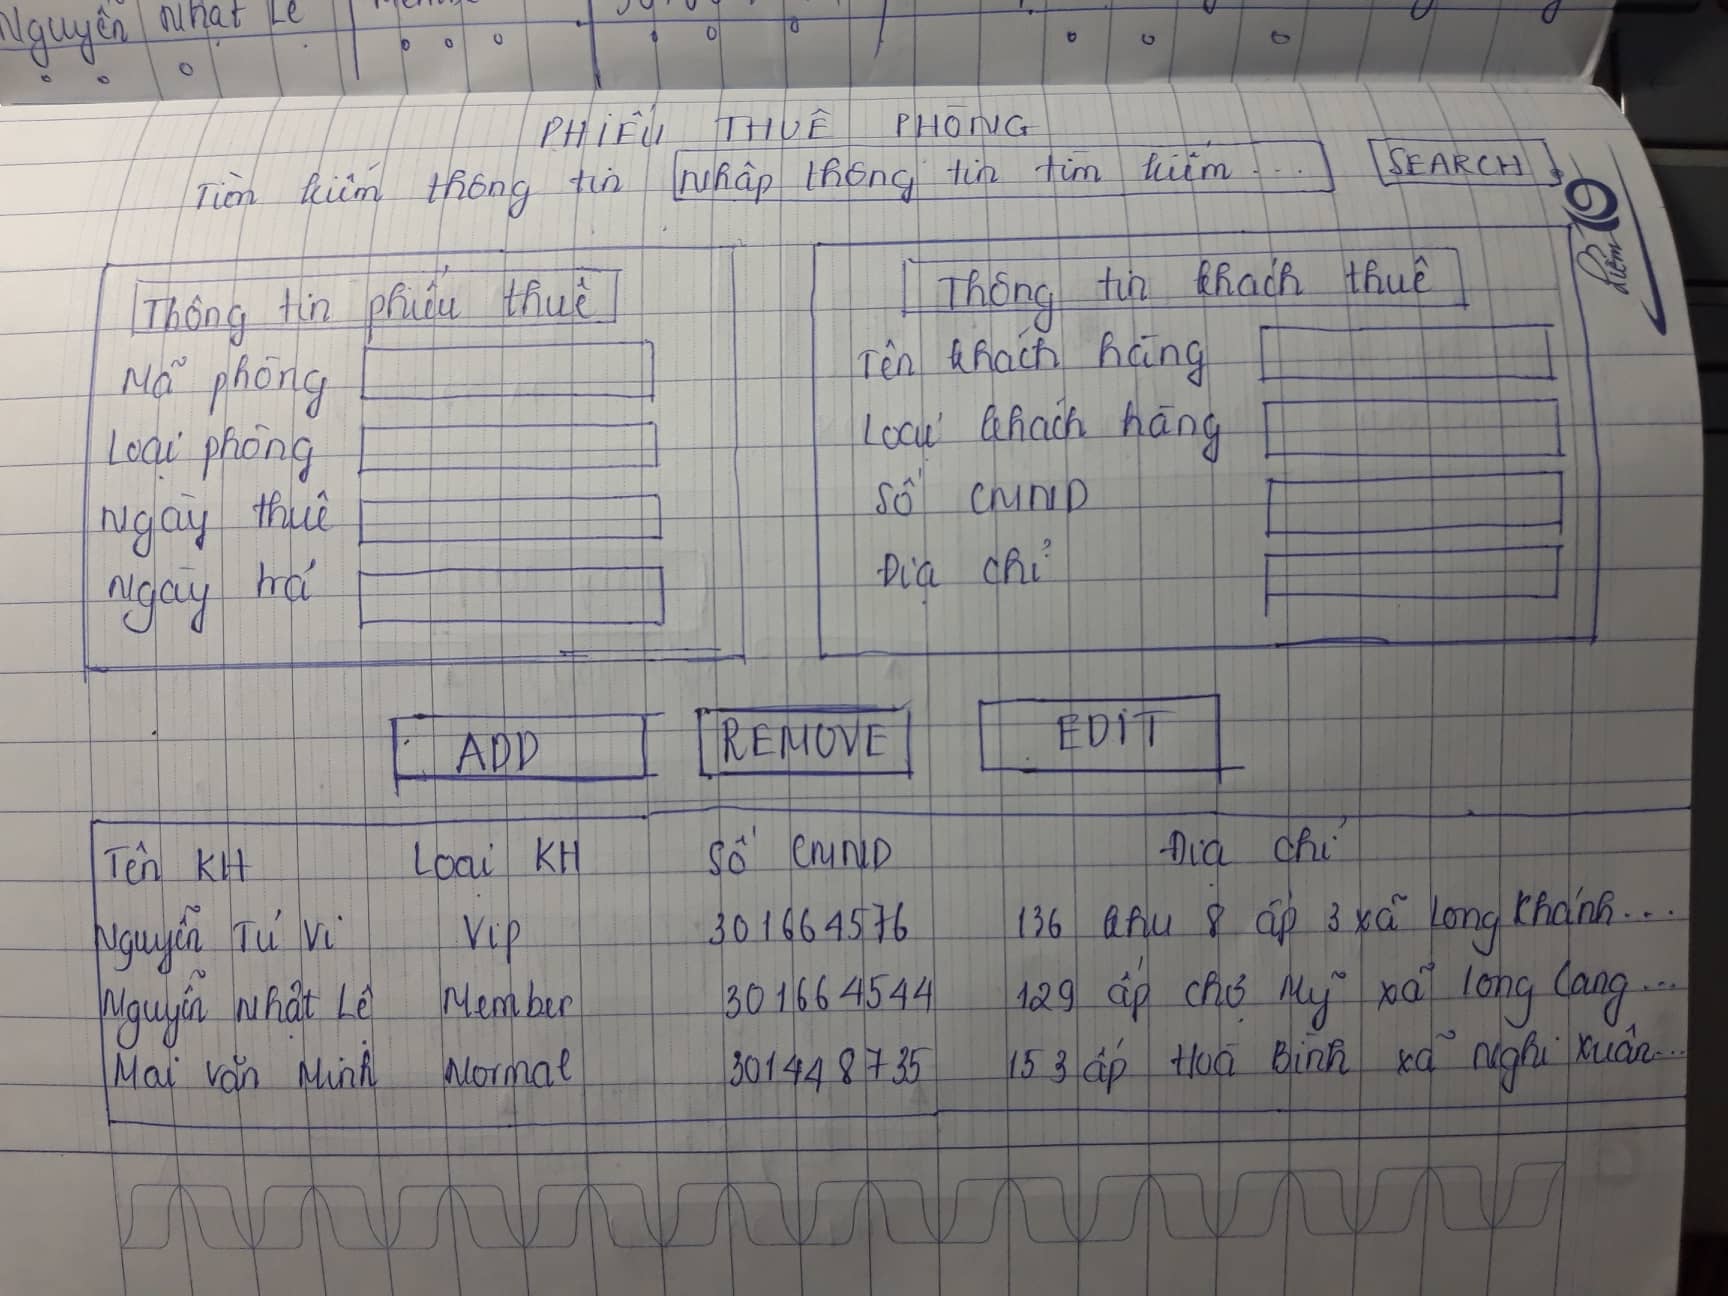 Nguyễn Nhật Lê
PHIẾU THUÊ PHÒNG
Tìm kiếm thông tin Nhập thông tin tìm kiếm ... SEARCH
điểm 10
Thông tin phiếu thuê
Mã phòng
Loại phòng
Ngày thuê
Ngày trả
Thông tin khách thuê
Tên khách hàng
Loại khách hàng
Số CMND
Địa chỉ
ADD REMOVE EDIT
Tên KH Loại KH Số CMND Địa chỉ
Nguyễn Tú Vi Vip 301664576 136 khu 8 ấp 3 xã Long Khánh...
Nguyễn Nhật Lê Member 301664544 129 ấp chợ Mỹ xã Long Cang...
Mai Văn Minh Normal 301448735 153 ấp Hoà Bình xã Nghi Xuân...